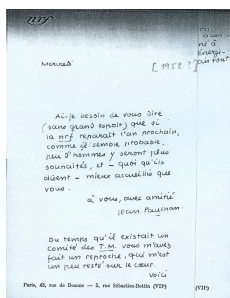 nrf
Mercredi
[1952 ?]
Ai-je besoin de vous dire
(sans grand espoir) que si
la nrf reparaît l'an prochain,
comme il semble probable,
peu d'hommes y seront plus
souhaités, et — quoi qu'ils
disent — mieux accueillis que
vous.
à vous, avec amitié
Jean Paulhan.
Du temps qu'il existait un
comité des T.M. vous m'avez
fait un reproche, qui m'est
un peu resté sur le cœur.
Voici
Paris, 43, rue de Beaune — 5, rue Sébastien-Bottin (VIIe)
on
né à
ais tout
(VIIe)